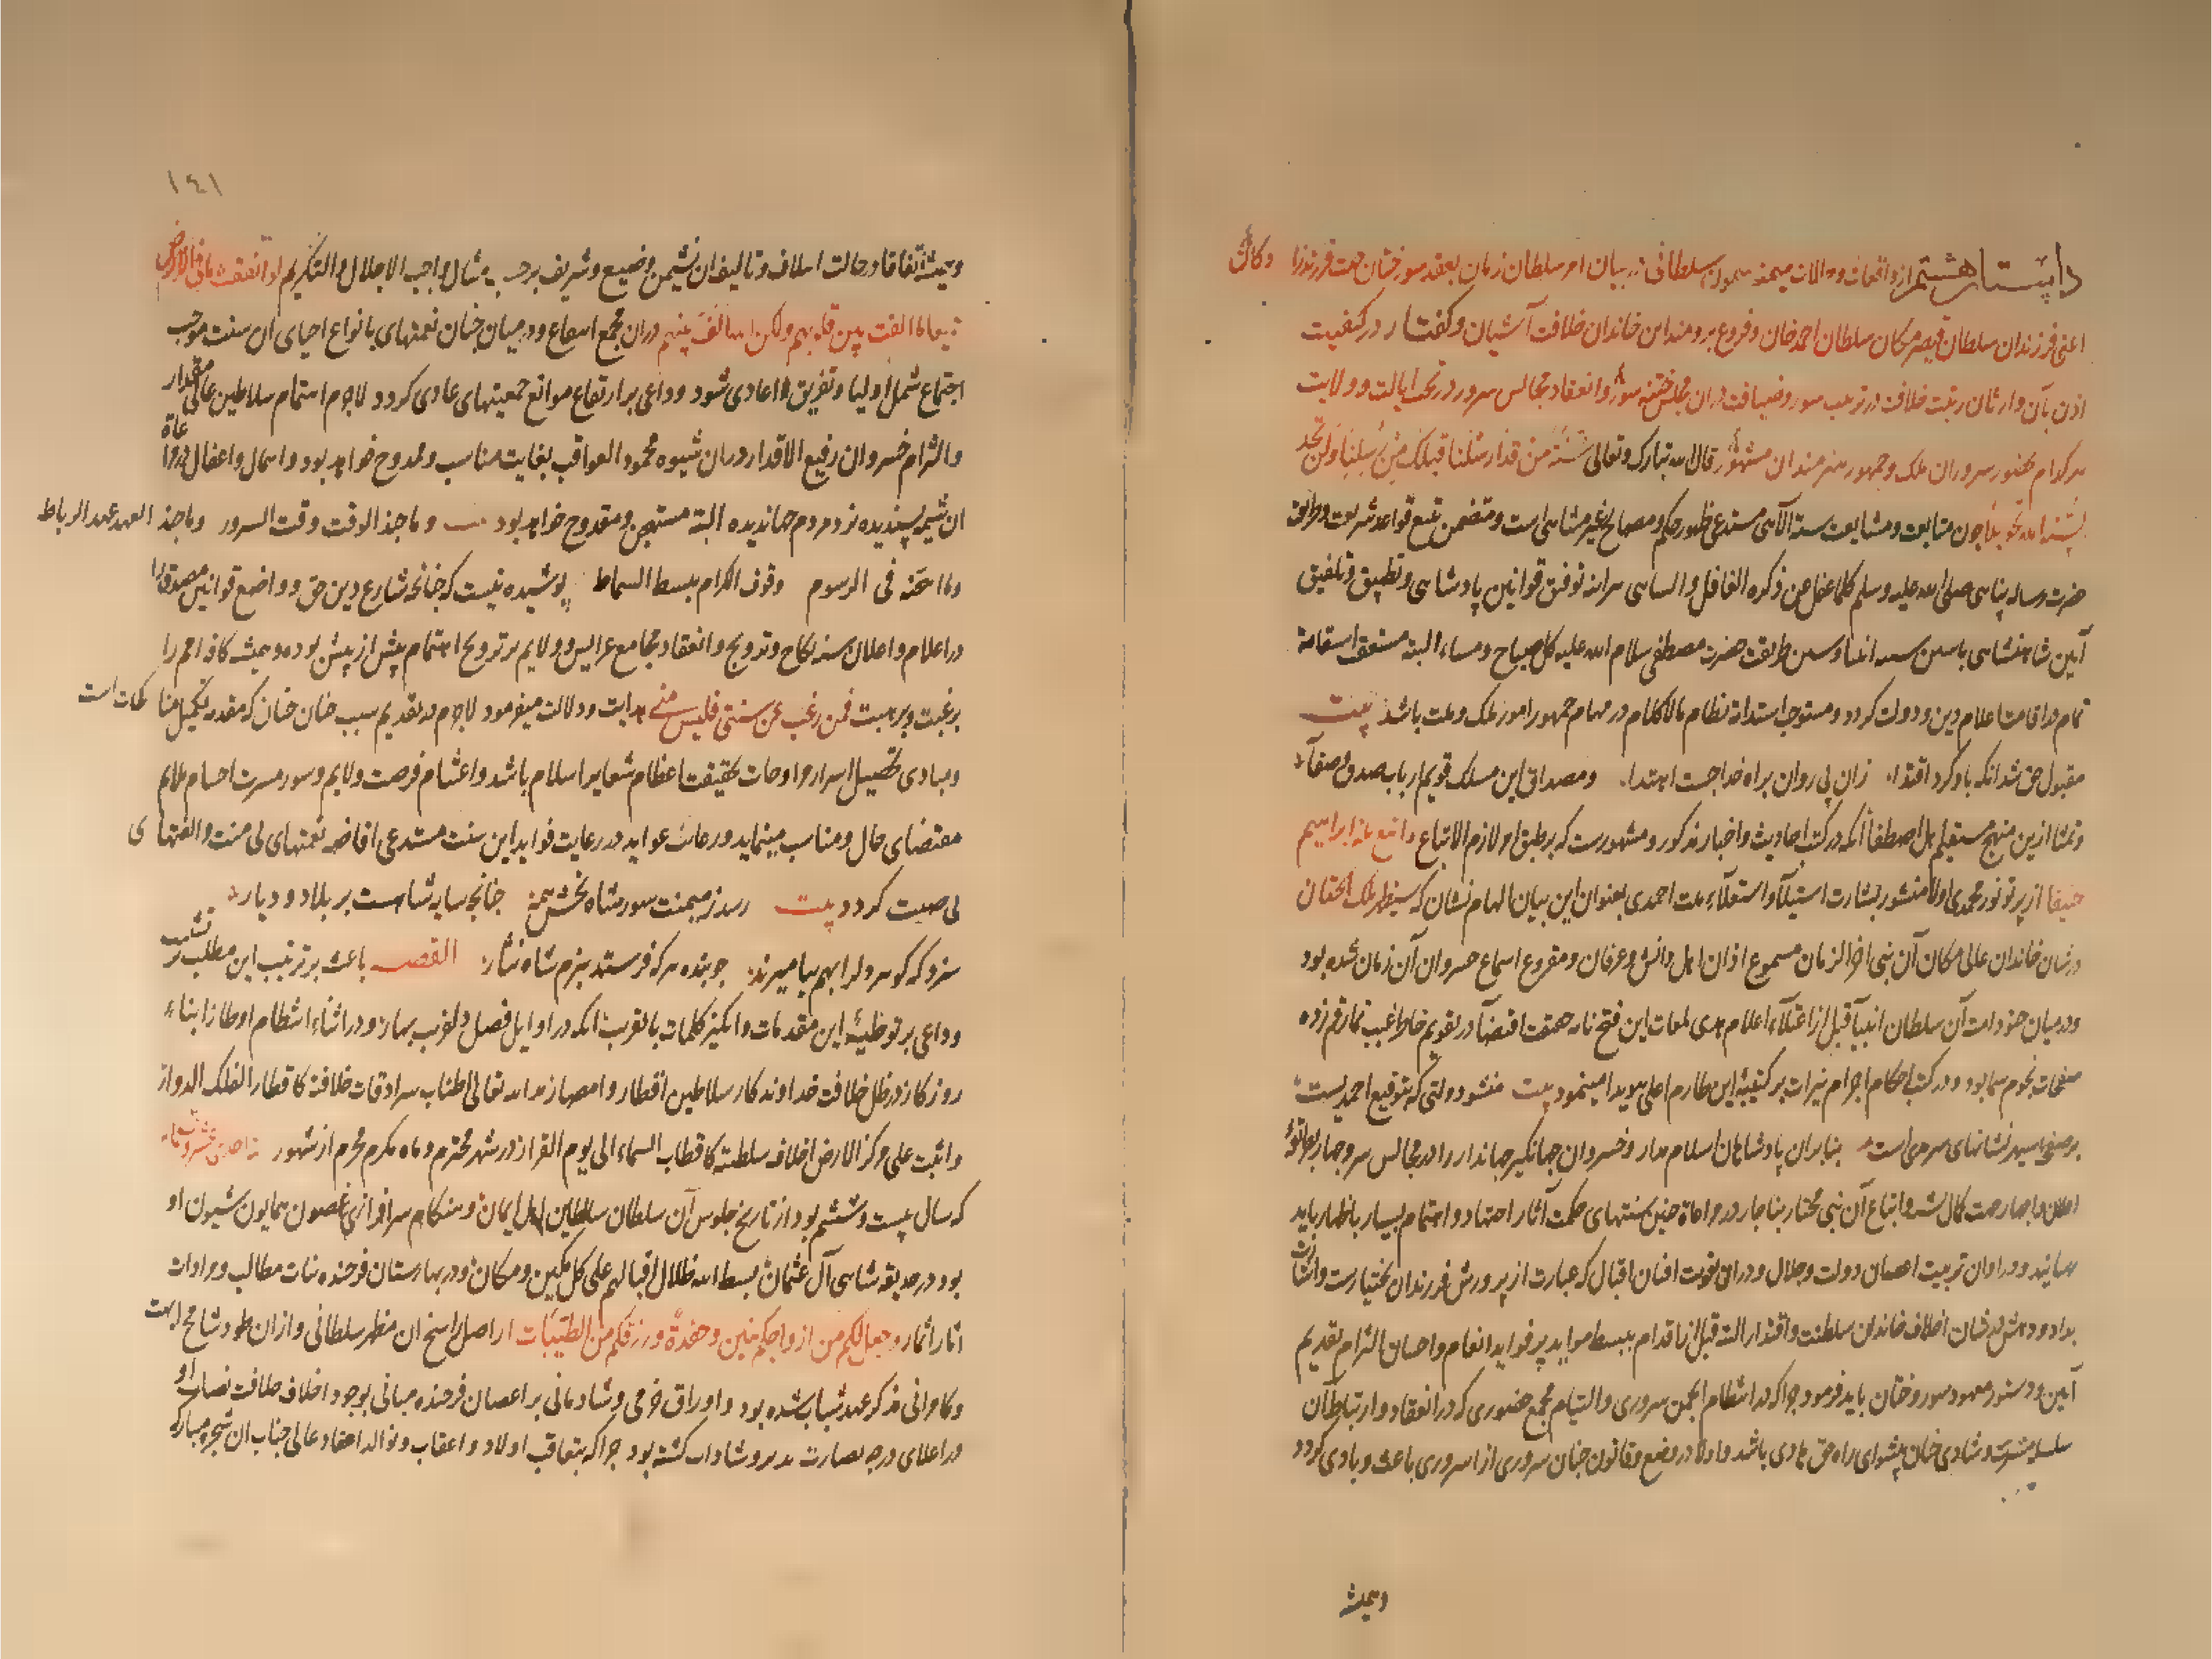 داستان هشتم از واقعات و حالات میمنه سمول سلطانی در بیان امر سلطان زمان بعقد سور ختان جهت فرزندزا دکان
اعنی فرزندان سلطان قیصر مکان سلطان احمد خان و فروع برومند این خاندان خلافت آشیان و کفتار در کیفیت
اذن بآن وارثان رتبت خلافت در ترتیب سور و ضیافت دران مجلس ختنه سور و انعقاد مجالس سرور در تخت ایالت و ولایت
هر کدام بحضور سروران ملک و جمهور هنرمندان مشهور قال الله تبارک و تعالی سنة من قد ارسلنا قبلک من رسلنا ولن تجد
لسنتنا تحویلا چون متابعت و مشایعت سنة الآهی مستدعی ظهور حکم و مصالح غیر متناهی است و متضمن تتبع قواعد شریعت و طریقت
حضرت رسالت پناهی صلی الله علیه وسلم کلما غفل عن ذکره الغافل والساهی هرآینه توفیق قوانین پادشاهی و تطبیق و تلفیق
آیین شاهنشاهی باسنن انبیا و سنن طریقت حضرت مصطفی سلام الله علیه کل صباح و مساء البته مستعقب استقامة
تمام در اقامت اعلام دین و دولت کردد و مستوجب استدامة نظام مالاکلام در مهام جمهور امور ملک و ملت باشد بیت
مقبول حق شد انکه باو کرد اقتدا زان پی روان براه خدا جست اهتدا و مصداق این مسلک قویم ارباب صدق و صفا
و منشا ازین منهج مستقیم اهل اصطفا آنکه در کتب احادیث و اخبار مذکور و مشهورست که بر طبق امر لازم الاتباع واتبع ملة ابراهیم
حنیفا از پرتو نور محمدی اولا منشور بشارت استیلا و استعلاء ملت احمدی بعنوان این بیان الهام نشان که سیظهر ملک الختان
در شان خاندان عالی مکان آن نبی اخر الزمان مسموع اذان اهل دانش و عرفان و مقروع اسماع خسروان آن زمان شده بود
و درمیان جنود امت آن سلطان انبیا قبل از اعتلاء اعلام هدی لمعات این فتح نامه حمیت اقتضا در تقویم خاطر غیب نما رقم زده
صفحات نجوم سما بود و در کتب احکام اجرام نیرات بر کتیبه این طارم اعلی هویدا مینمود بیت منشور دولتی که بتوقیع احمدیست
بر صفحه سپهر نشانهای سرمدی است بنابران پادشاهان اسلام مدار و خسروان جهانکیر جهاندار را در مجالس سر و جهار بطریق
اعلان و اجهار جهت کمال نشر و اتباع آن نبی مختار بناچار در مراعاة چنین سنتهای حکمت آثار اجتهاد و اهتمام بسیار باظهار باید
رسانید و در اوان تربیت اغصان دولت و جلال و دران نوبت افنان اقبال که عبارت از پرورش فرزندان بختیارست وارثان
بداد و دهش در شان اخلاف خاندان سلطنت و اقتدار البته قبل از اقدام ببسط مواید پر فواید انعام و احسان التزام تقدیم
آیین و دستور معهود سور و ختان باید فرمود جرا که در انتظام انجمن سروری و التیام مجمع حضوری که در انعقاد و ارتباط آن
سلسله مسرت و شادی چنان پیشوای راه حق هادی باشد و اولا در وضع و قانون جنان سروری از سروری باعث و بادی کردد
و همیشه
١٤١
و همیشه اتفاقا در حالت اسلاف و تالیف ان نشیمن وضیع و شریف بر حسب مثال واجب الاجلال و التکریم لو انفقت ما فی الارض
جمیعا ما الفت بین قلوبهم ولکن الله الف بینهم دران مجمع اسماع و درمیان جنان نعمتهای بانواع احیای ان سنت موجب
اجتماع شمل اولیا و تفریق اعادی شود و داعی بر ارتفاع موانع جمعیتهای عادی کردد لاجرم اهتمام سلاطین عالی مقدار
و التزام خسروان رفیع الاقدار دران شیوه محمود العواقب بغایت مناسب و ممدوح خواهد بود و اهمال و اغفال در مراعاة
ان شیمه پسندیده نزد مردم جهاندیده البته مستهجن و مقدوح خواهد بود وماجذ الوقت وقت السرور وماجذ العهد عهد الرباط
وما احتنه فی الرسوم وقوف الکرام ببسط السماط پوشیده نیست که جنانچه شارع دین حق و واضع قوانین صدق
در اعلام و اعلان سنه نکاح و تزویج و انعقاد مجامع عرایس و ولایم بر ترویج اهتمام بیش از پیش بوده و همیشه کافه امم را
برغبت و برهبت فمن رغب عن سنتی فلیس منی هدایت و دلالت میفرمود لاجرم در تقدیم سبب ختان جنان که مقدمه تکمیل مناکحات است
و مبادی تحصیل اسرار مزاوجات بحقیقت اعظام شعایر اسلام باشد و اغتنام فرصت ولایم و سور مسرت احسام ملایم
مقتضای حال و مناسب مینماید و رعایت عواید در رعایت فواید این سنت مستدعی افاضه نعمتهای بی منت و الفتهای
بی صیت کردد بیت رسد ز میمنت سور شاه بخش همه جنانچه سایه شاهست بر بلاد و دیار
سزد که کوهر دلرا بهم بیامیزند جو بنده هر که فرستد ببزم شاه نثار القصه باعث بر ترتیب این مطلب و تشبیب
و داعی بر توطئه این مقدمات و انکیز کلمات بالقرب انکه در اوایل فصل دلفریب بهار و در اثناء انتظام اوطار ابناء
روزکار در ظل خلافت خداوندکار سلاطین اقطار و امصار مد الله تعالی اطناب سرادقات خلافته کاقطار الفلک الدوار
واثبت علی مرکز الارض اخلاف سلطنته کاقطاب السماء الی یوم القرار در شهر محترم و ماه مکرم محرم از شهور
که سال بیست و ششم بود از تاریخ جلوس آن سلطان سلاطین اهل ایمان و هنکام سرافرازی غصون همایون شیون او
بود در حدیقه شاهی آل عثمان بسط الله ظلال اقبالهم علی کل مکین و مکان و در بهارستان فرخنده نبات مطالب و مرادات
اثار اثمار وجعل لکم من ازواجکم بنین وحفدة ورزقکم من الطیبات از اصل راسخ ان مظهر سلطانی و ازان طود شامخ ابهت
و کامرانی مذکر عهد شباب شده بود و اوراق خرمی و شادمانی بر اغصان فرخنده مبانی بوجود اخلاف خلافت نصاب او
در اعلای درجه نضارت و شاداب کشته بود جراکه بتعاقب اولاد و اعقاب و توالد احفاد عالی جناب ان شجره مبارکه